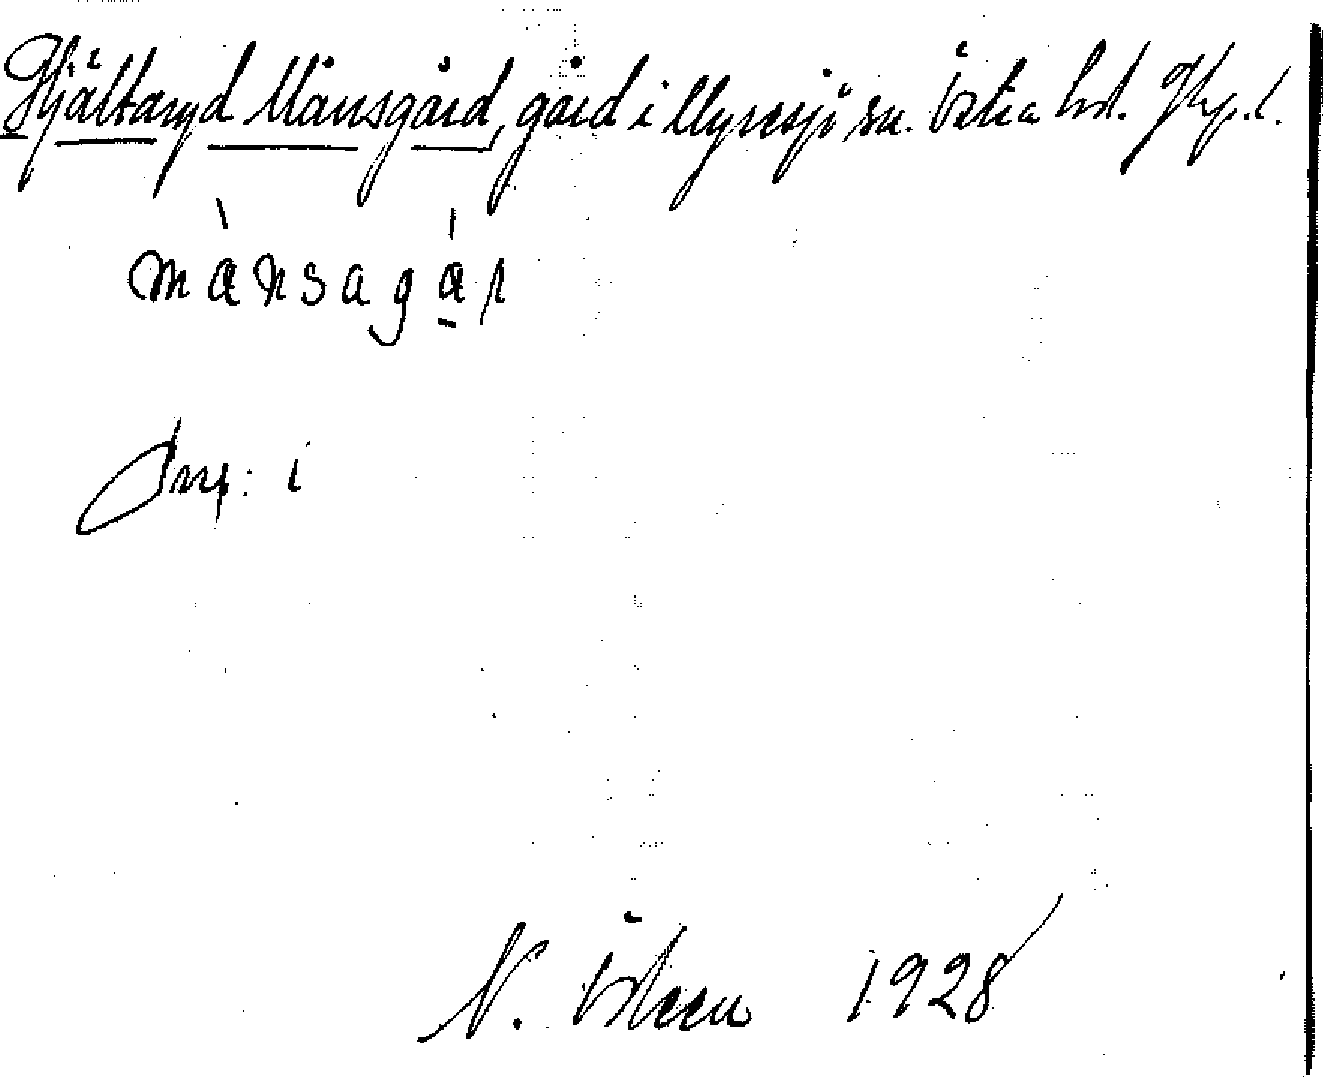 Hjältaryd Månsgård, gård i Myresjö sn. Östra hd. Jkp. l.
mànsagár
Prep: i
N. Östeen 1928